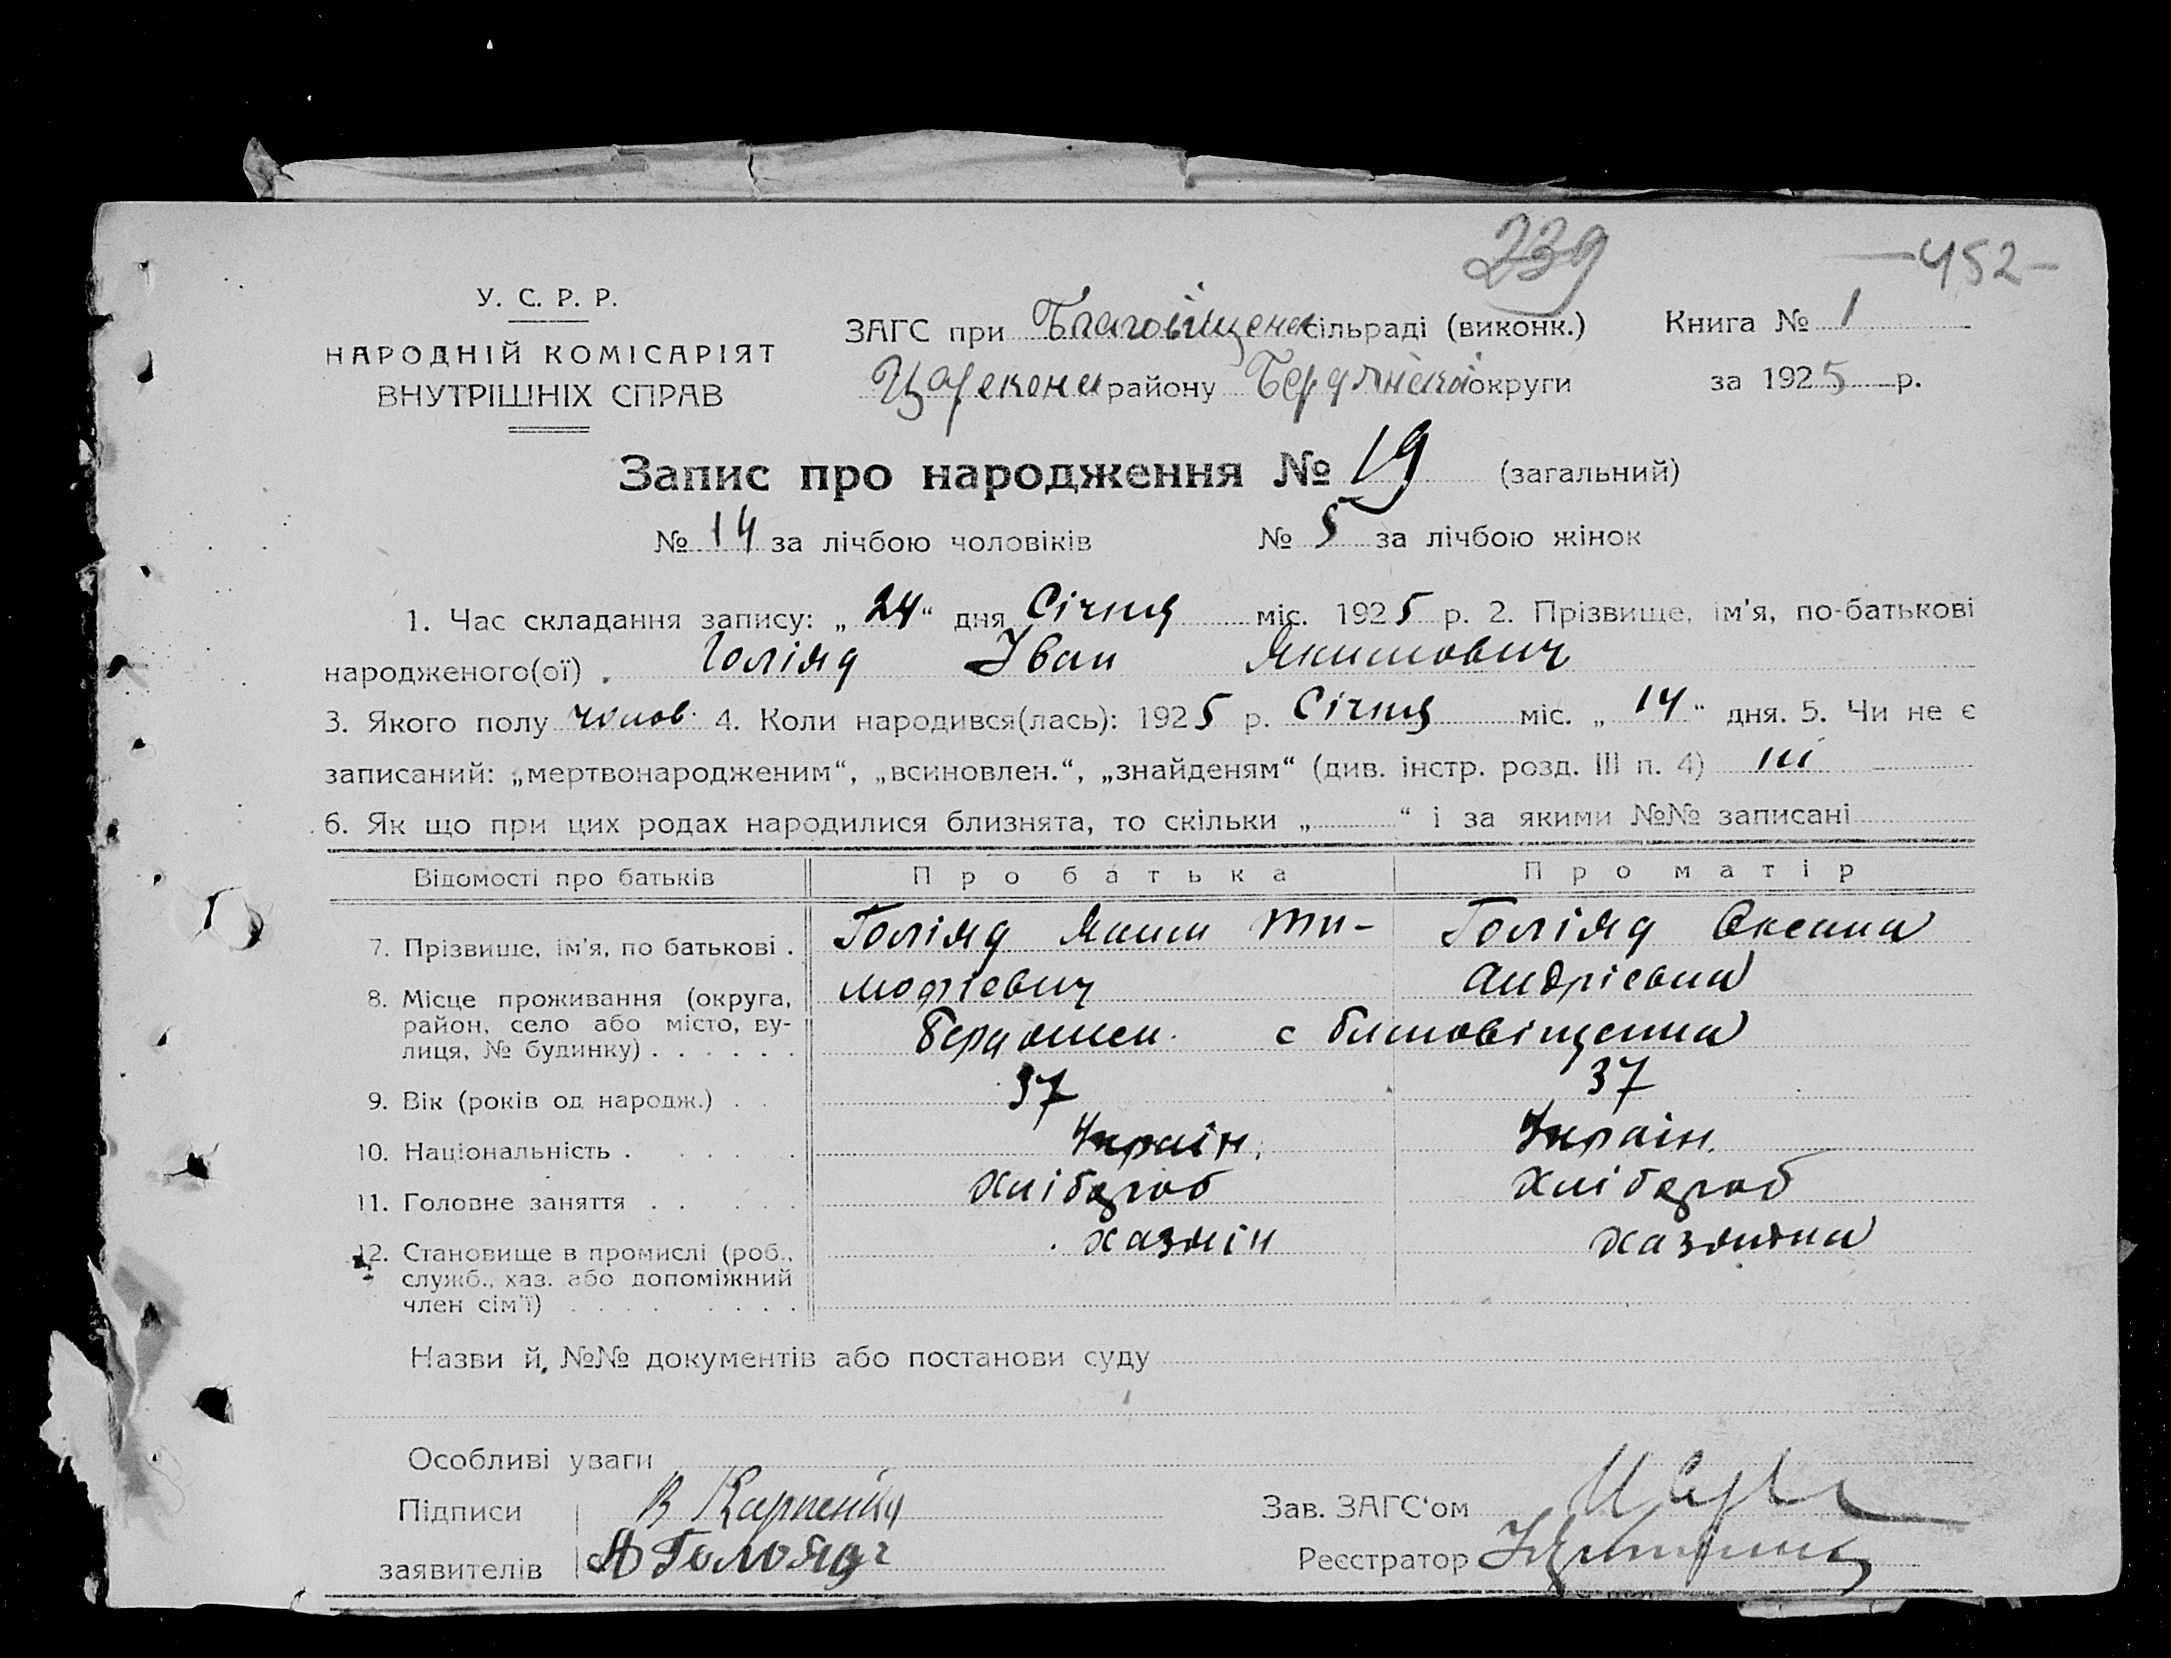 239 —452—
У. С. Р. Р.
НАРОДНІЙ КОМІСАРІЯТ
ВНУТРІШНІХ СПРАВ
ЗАГС при Благовіщенс сільраді (виконк.) Книга № 1
Царекон району Бердянської округи за 1925 р.
Запис про народження № 19 (загальний)
№ 14 за лічбою чоловіків № 5 за лічбою жінок
1. Час складання запису: „24“ дня Січня міс. 1925 р. 2. Прізвище, ім'я, по-батькові
народженого(ої) Голіяд Іван Якимович
3. Якого полу чолов. 4. Коли народився(лась): 1925 р. Січня міс. „14“ дня. 5. Чи не є
записаний: „мертвонародженим“, „всиновлен.“, „знайденям“ (див. інстр. розд. III п. 4) ні
6. Як що при цих родах народилися близнята, то скільки „ “ і за якими №№ записані
Відомості про батьків Про батька Про матір
7. Прізвище, ім'я, по батькові . Голіяд Яким Ти- Голіяд Оксана
8. Місце проживання (округа, мофіевич Андріевна
район, село або місто, ву-
лиця, № будинку) . . . . . . с Благовіщенка
9. Вік (років од народж.) . . 37 37
10. Національність . . . . . Україн. Україн.
11. Головне заняття . . . . . Хлібороб Хлібороб
12. Становище в промислі (роб., хазяїн хазяйка
служб., хаз. або допоміжний
член сім'ї) . . . . . . . .
Назви й №№ документів або постанови суду
Особливі уваги
Підписи В Карпенко Зав. ЗАГС'ом
заявителів Реєстратор